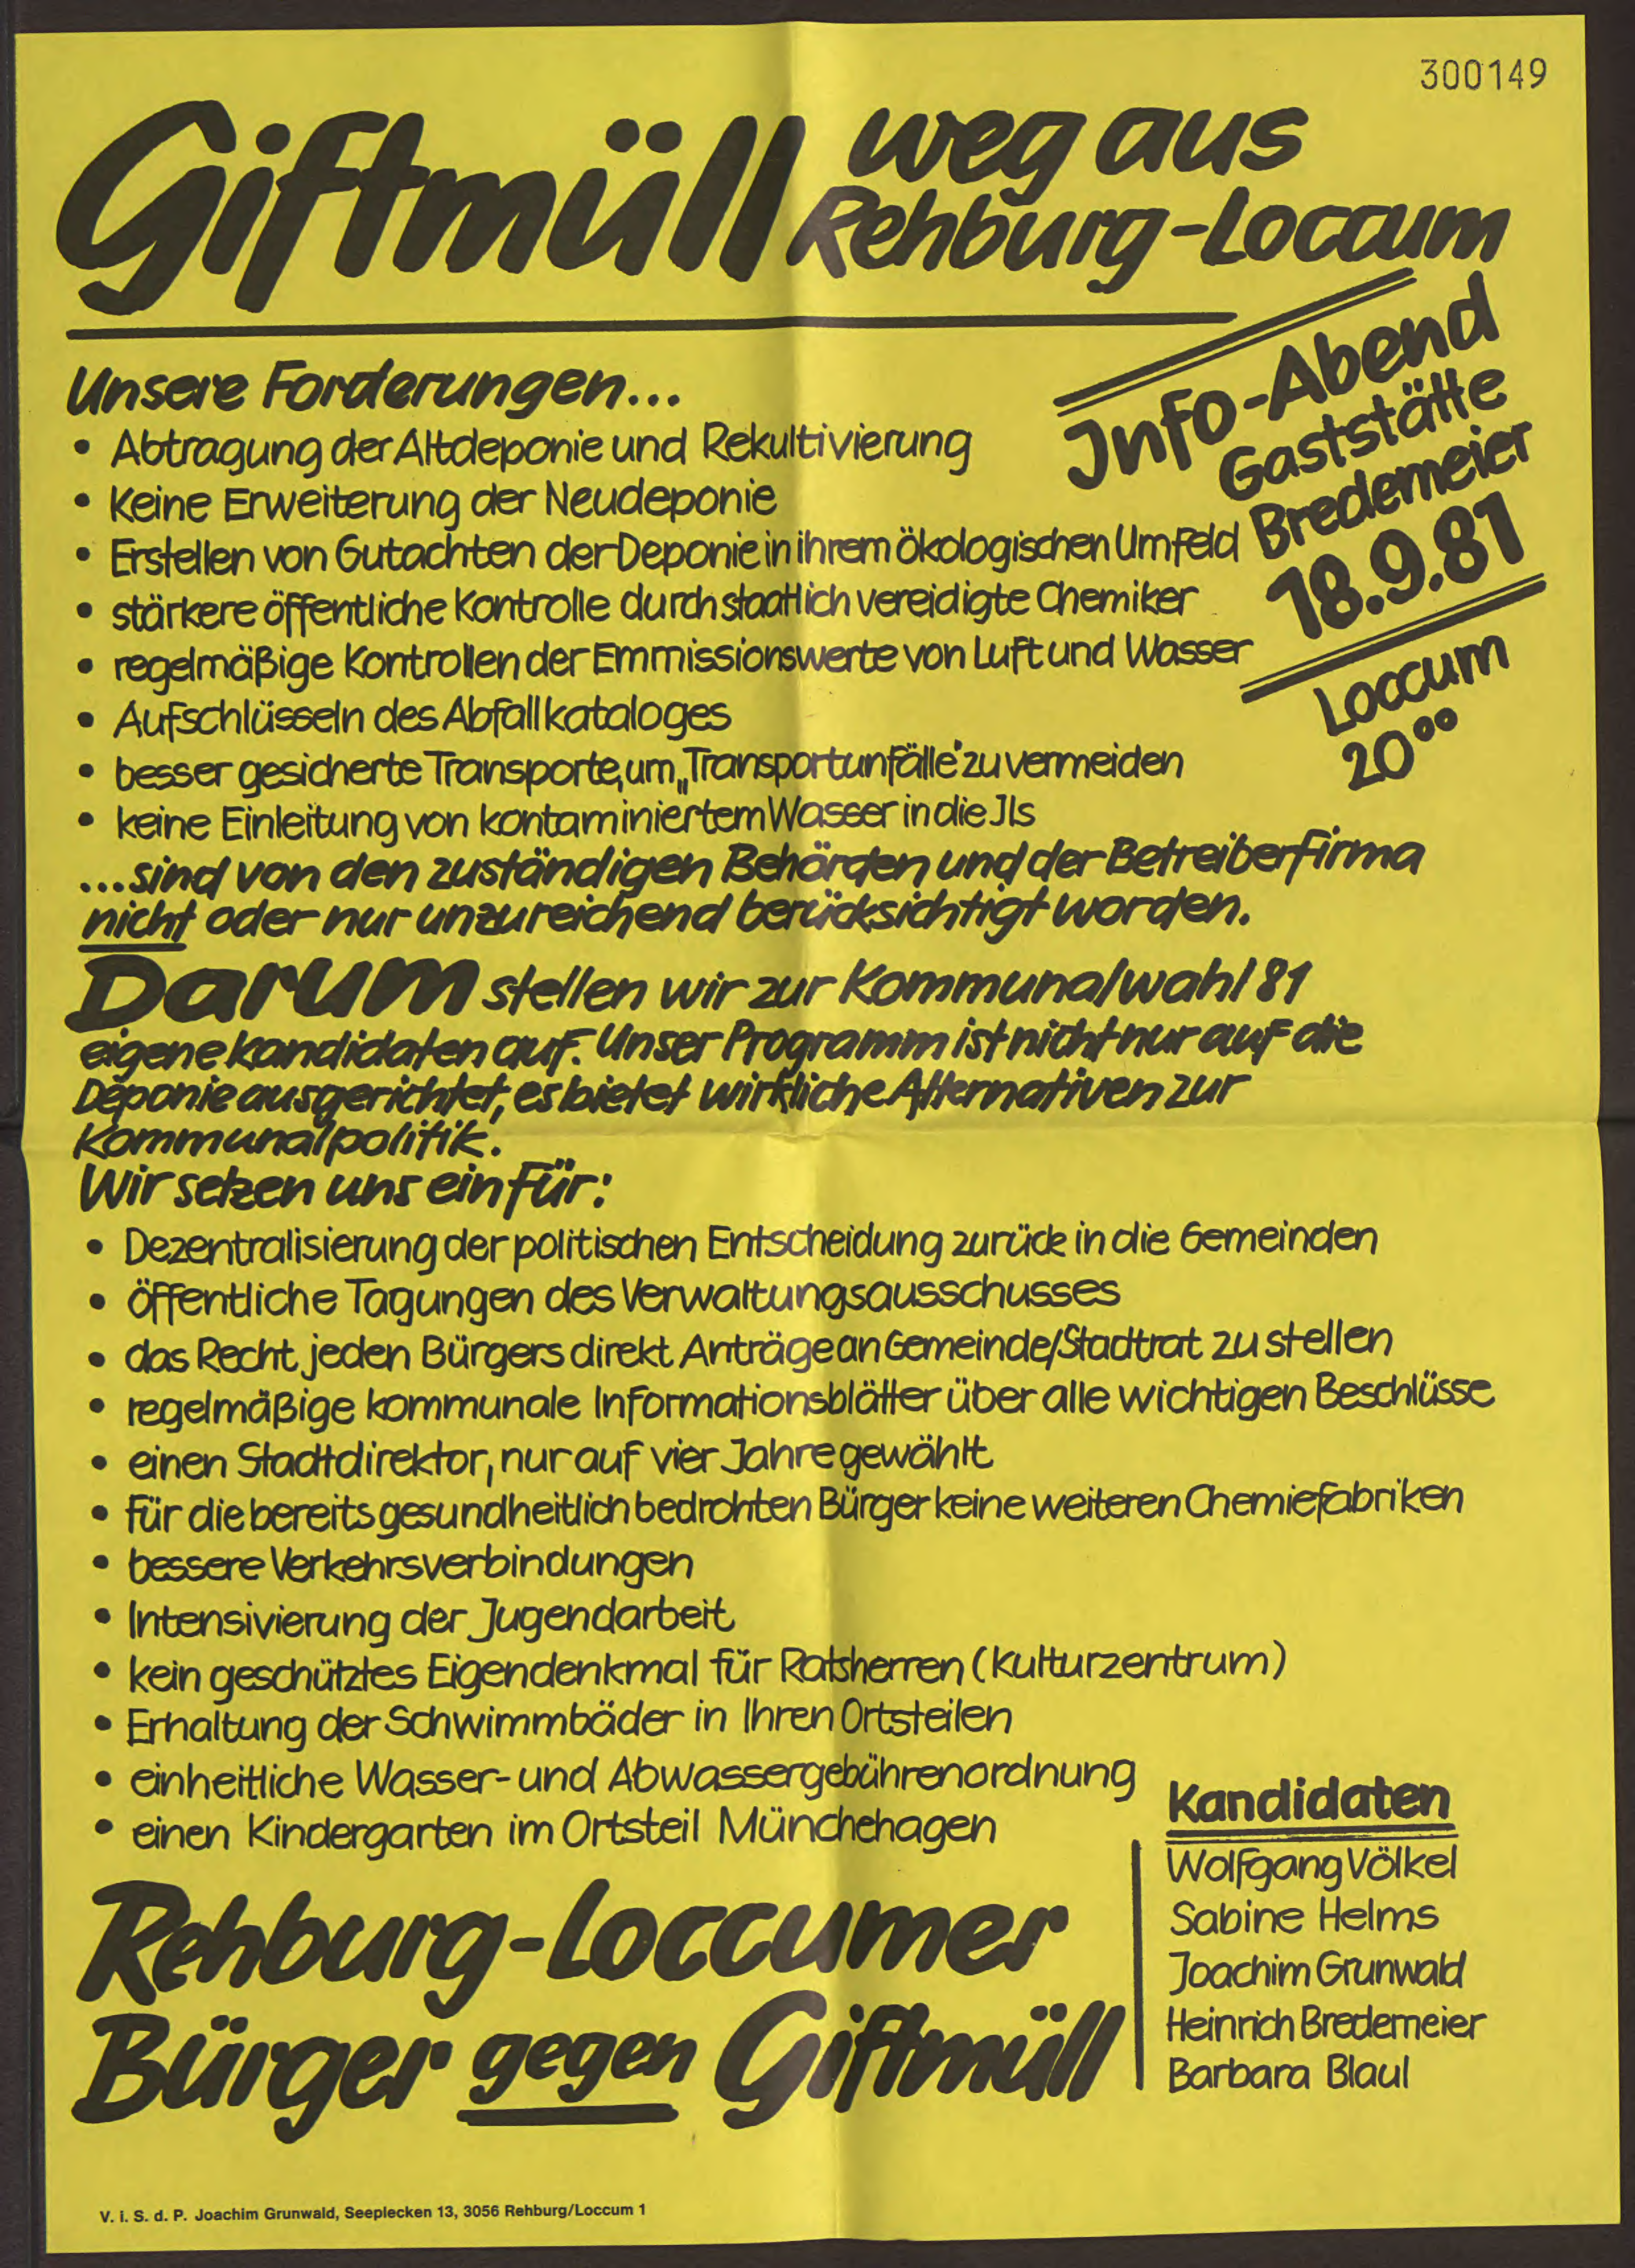 300149
Giftmüll weg aus
Rehburg-Loccum
Info-Abend
Gaststätte
Bredemeier
18.9.81
Loccum
20⁰⁰
Unsere Forderungen...
• Abtragung der Altdeponie und Rekultivierung
• Keine Erweiterung der Neudeponie
• Erstellen von Gutachten der Deponie in ihrem ökologischen Umfeld
• stärkere öffentliche Kontrolle durch staatlich vereidigte Chemiker
• regelmäßige Kontrollen der Emmissionswerte von Luft und Wasser
• Aufschlüsseln des Abfallkataloges
• besser gesicherte Transporte, um „Transportunfälle" zu vermeiden
• keine Einleitung von kontaminiertem Wasser in die Ils
...sind von den zuständigen Behörden und der Betreiberfirma
nicht oder nur unzureichend berücksichtigt worden.
Darum stellen wir zur Kommunalwahl 81
eigene Kandidaten auf. Unser Programm ist nicht nur auf die
Deponie ausgerichtet, es bietet wirkliche Alternativen zur
Kommunalpolitik.
Wir setzen uns ein für:
• Dezentralisierung der politischen Entscheidung zurück in die Gemeinden
• öffentliche Tagungen des Verwaltungsausschusses
• das Recht jeden Bürgers direkt Anträge an Gemeinde/Stadtrat zu stellen
• regelmäßige kommunale Informationsblätter über alle wichtigen Beschlüsse
• einen Stadtdirektor, nur auf vier Jahre gewählt
• für die bereits gesundheitlich bedrohten Bürger keine weiteren Chemiefabriken
• bessere Verkehrsverbindungen
• Intensivierung der Jugendarbeit
• kein geschütztes Eigendenkmal für Ratsherren (Kulturzentrum)
• Erhaltung der Schwimmbäder in Ihren Ortsteilen
• einheitliche Wasser- und Abwassergebührenordnung
• einen Kindergarten im Ortsteil Münchehagen
Rehburg-Loccumer
Bürger gegen Giftmüll
Kandidaten
Wolfgang Völkel
Sabine Helms
Joachim Grunwald
Heinrich Bredemeier
Barbara Blaul
V. i. S. d. P. Joachim Grunwald, Seeplecken 13, 3056 Rehburg/Loccum 1